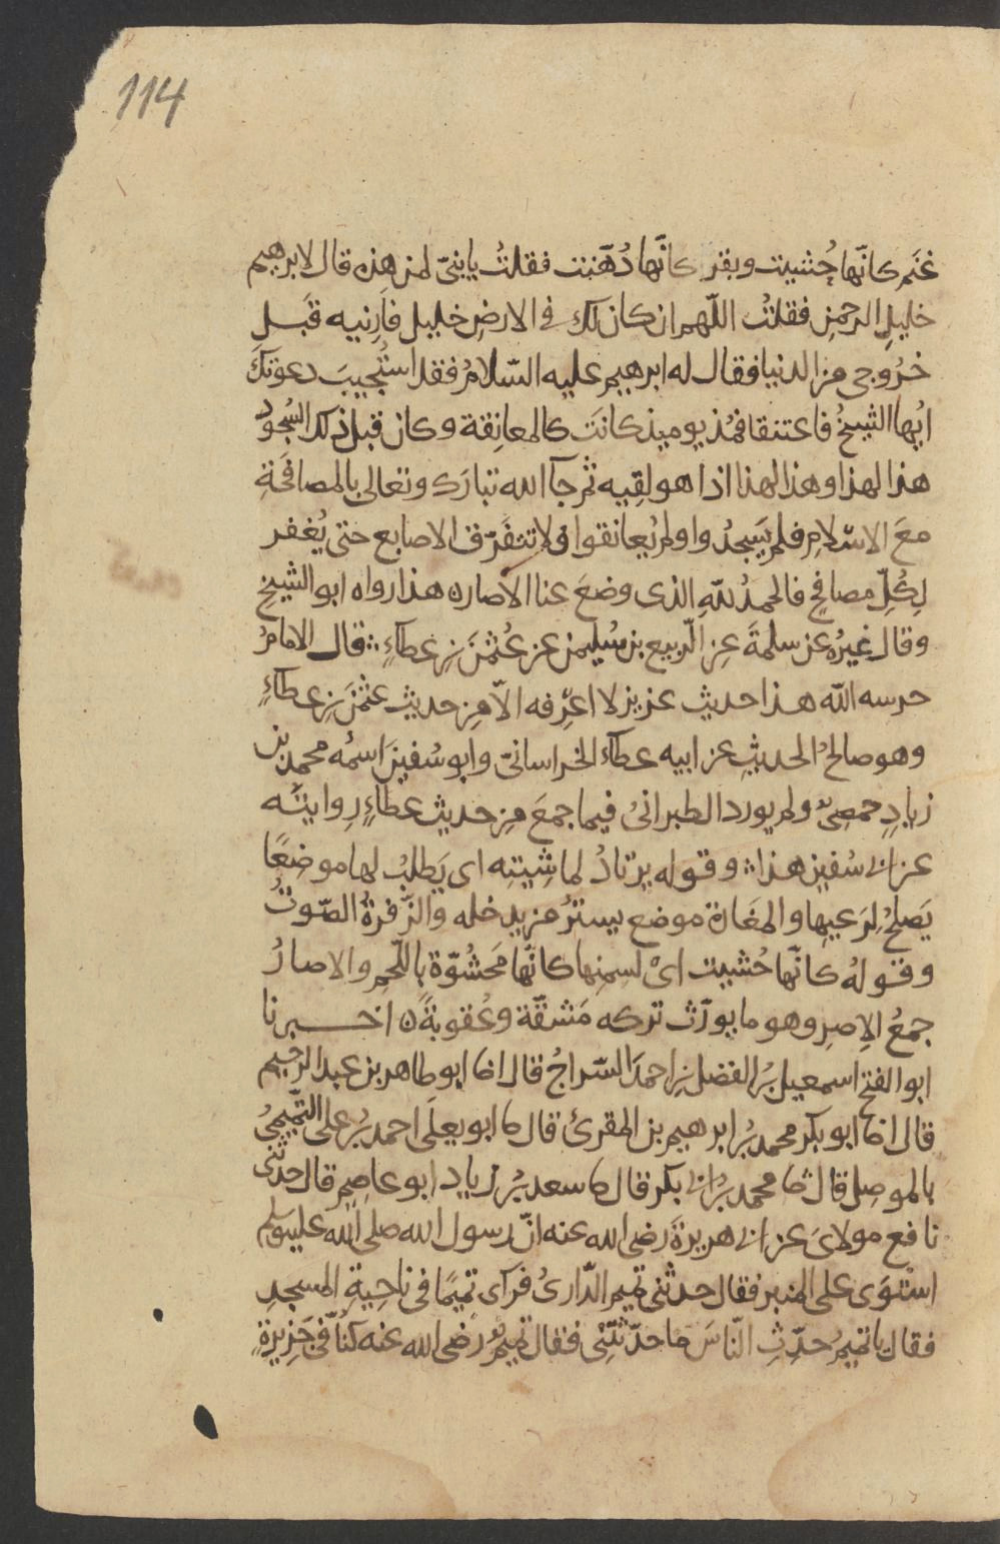 114
غنم كانّها حُشيت وبقر كانّها دُهّنت فقلتُ يا بنىّ لمن هذه قال لابرهيم
خليلِ الرحمنِ فقلتُ اللّهم ان كان لك في الارضِ خليل فارِنيه قَبل
خرُوجى من الدنيا فقال له ابرهيم عليه السّلامُ فقد استُجيبَ دعوتكَ
ايُّها الشيخُ فاعتنقا فمُذ يوميذ كانتَ كالمعانِقة وكان قبل ذلك السُجود
هذا لهذا وهذا لهذا اذا هو لقِيه ثم جآ الله تبارَك وتعالى بالمصافَحَةِ
معَ الاسّلامِ فلم يَسجدُوا ولم يُعانقوا ولا تتفَرّق الاصابع حتى يُغفر
لِكُلِّ مصافحٍ فالحمدُ للهِ الذى وضعَ عنا الآصاره هذا رواه ابو الشيخِ
وقال غيرُه عن سلمةَ عنِ الرّبيع بن سُليمن عن عُثمٰنَ بنِ عطآءٍ ۞ قال الامامُ
حرسه اللّه هذا حديث عزيز لا اعرِّفه الاّ مِن حديث عثمٰنَ بنِ عطآءٍ
وهو صالحُ الحديثِ عن ابيه عطآء الخراسانىّ وابو سُفينَ اسمُه محمد بن
زيادٍ حمصِىٌّ ولم يورد الطبرانىُ فيما جمعَ مِن حديث عطآءٍ رِوايتَه
عن ابى سُفين هذا ۞ وقوله يرتادُ لماشِيتِه اى يَطلبُ لها موضِعًا
يَصلحُ لِرَعيِها والمغَارة موضع يسترُ من يدخله والزّفرةُ الصّوتُ
وقولهُ كانّها حُشيت اىْ لسِمنِها كانّها مَحشُوّة باللّحمِ والاصارُ
جمعُ الاِصرِ وهو ما يورَث تركه مَشقَّة وعُقوبةً ۞ اخبرنا
ابو الفتح اسمعيل بنُ الفضل بنِ احمدَ السّراجُ قال انا ابو طاهر بن عبد الرحيم
قال انا ابو بكر محمد بنُ ابرهيم بن المقرئ قال نا ابو يعلَى احمد بنُ على التّميمىُ
بالموصِل قال ثنا محمد بنُ ابى بكر قال نا سعد بنُ زياد ابو عاصِم قال حدثنى
نافع مولاىَ عن ابى هريرةَ رضى الله عنه انّ رسول الله صلى الله عليه وسلم
استْوَى على المنبر فقال حدثنى تميم الدّارىُ فرآى تميمًا فى ناحِيةِ المسجدِ
فقال يا تميمُ حدِّثِ النّاسَ ما حدّثتَنِى فقال تميمٌ رضى الله عنه كُنّا فى جَزِيرةٍ